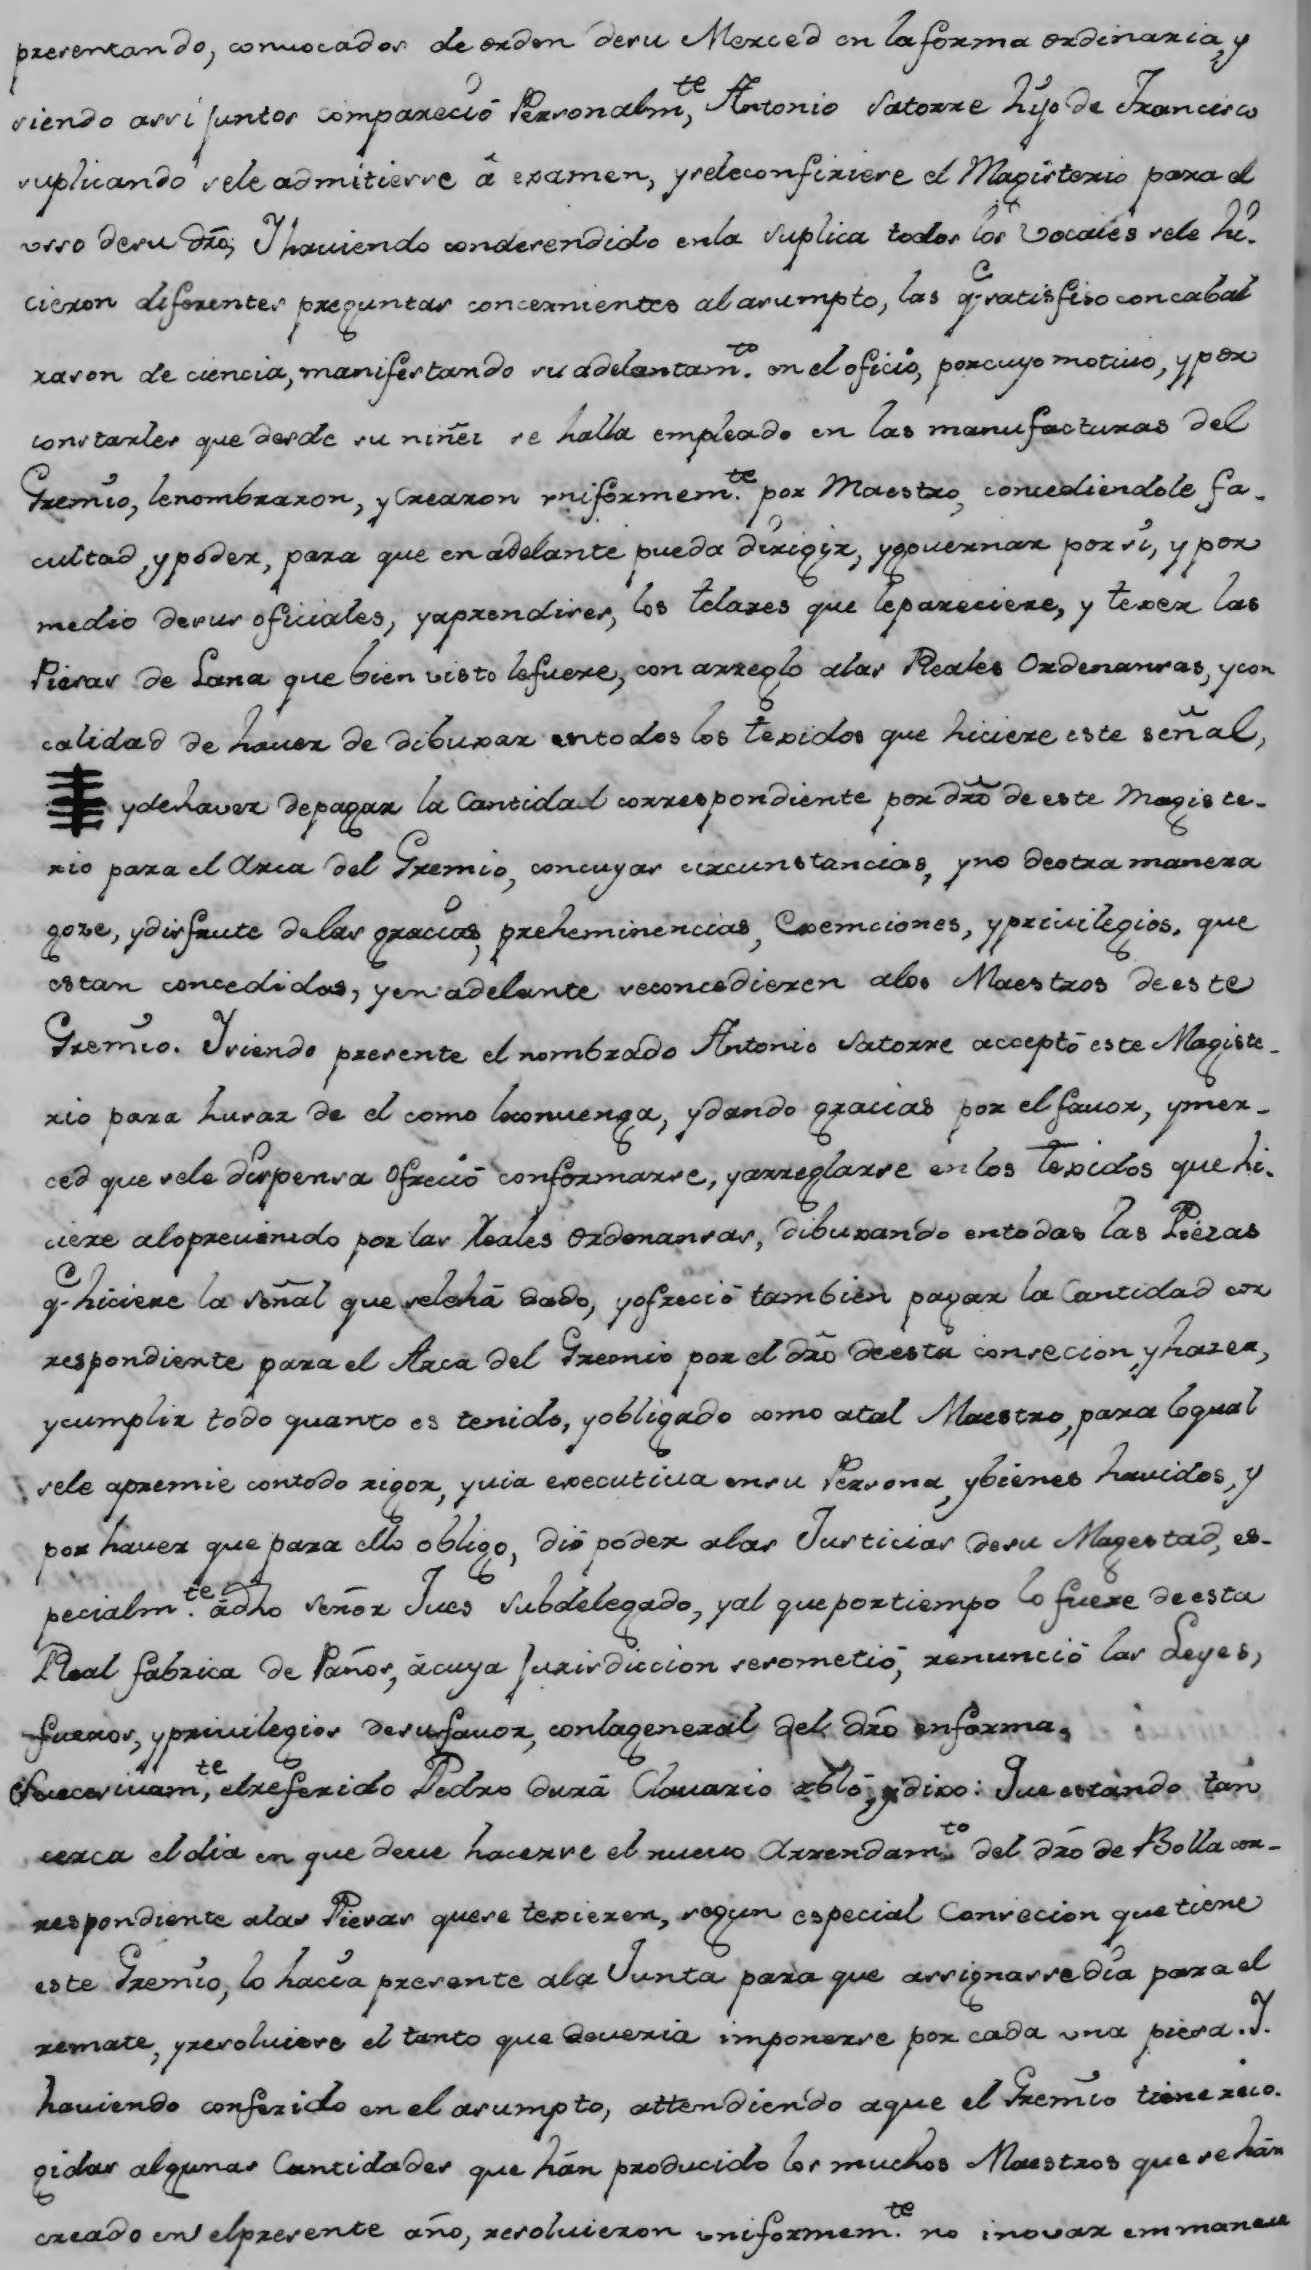 presentando, convocados de orden desu Merced en laforma ordinaria, y
siendo assi juntos compareció Personalm.te Antonio Satorre hijo de Francisco
suplicando sele admitiesse â examen, yseleconfiriese el Magisterio para el
usso desu dro; Y haviendo condesendido enla suplica todos los Vocales sele hi-
cieron diferentes preguntas concernientes al asumpto, las q.e satisfiso concabal
rason de ciencia, manifestando su adelantam.to en el oficio, porcuyo motivo, ypor
constarles que desde su niñez se halla empleado en las manufacturas del
Gremio, lenombraron, y Crearon uniformem.te por Maestro, concediendole fa-
cultad, y poder, para que en adelante pueda dirigir, ygovernar por si, y por
medio desus oficiales, yaprendises, los telares que lepareciere, y texer las
Piesas de Lana que bien visto lefuere, con arreglo alas Reales Ordenansas, ycon
calidad de haver de dibuxar entodos los texidos que hiciere este señal,
ydehaver depagar la Cantidad correspondiente por dro de este Magiste-
rio para el Arca del Gremio, concuyas circunstancias, yno deotra manera
goze, ydisfrute delas gracias, preheminencias, Exemciones, yprivilegios, que
estan concedidas, yen adelante seconcedieren alos Maestros deeste
Gremio. Ysiendo presente el nombrado Antonio Satorre acceptó este Magiste-
rio para husar de el como leconvenga, ydando gracias por el favor, ymer-
ced que sele dispensa ofreció conformarse, yarreglarse enlos texidos que hi-
ciere aloprevenido por las Reales Ordenansas, dibuxando entodas las Piezas
q.e hiciere la señal que selehá dado, yofreció tambien pagar la Cantidad cor
respondiente para el Arca del Gremio por el dro deesta consecion, y hazer,
ycumplir todo quanto es tenido, yobligado como atal Maestro, para loqual
sele apremie contodo rigor, yvia executiva ensu Persona, ybienes havidos, y
por haver que para ello obligo, dió poder alas Justicias desu Magestad, es-
pecialm.te ádho Señor Jues Subdelegado, yal queportiempo lo fuere deesta
Real fabrica de Paños, ácuya jurisdiccion sesometió, renunció las Leyes,
fueros, yprivilegios desufavor, conlageneral del dro enforma.
Sucesivam.te, elreferido Pedro Durá Clavario rbló, ydixo: Que estando tan
cerca eldia en que deve hacerse el nuevo Arrendam.to del dro de Bolla cor-
respondiente alas Piesas quese texieren, segun especial Consecion quetiene
este Gremio, lo hacia presente ala Junta para que assignasse dia para el
remate, yresolviese el tanto que deveria imponerse por cada una piesa. Y.
haviendo conferido en el asumpto, attendiendo aque el Gremio tiene reco-
gidas algunas Cantidades que hán producido los muchos Maestros que se hán
creado en elpresente año, resolvieron uniformem.te no inovar emmanera